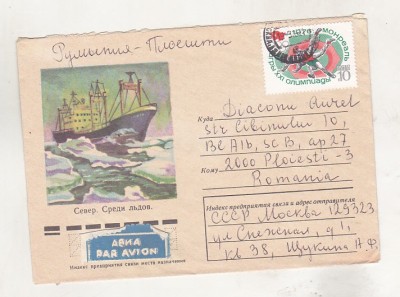 Румыния - Плоешти
1976
МОНРЕАЛЬ
ИГРЫ XXI ОЛИМПИАДЫ
10
Куда Diaconu Aurel
str Cibinului 10,
Bl A1b, sc B, ap 27
2000 Ploiesti - 3
Кому
Romania
Север. Среди льдов.
Индекс предприятия связи и адрес отправителя
СССР Москва 129323
ул Снежная, д 1,
кв 38, Щукина Н.Ф.
АВИА
PAR AVION
Индекс предприятия связи места назначения